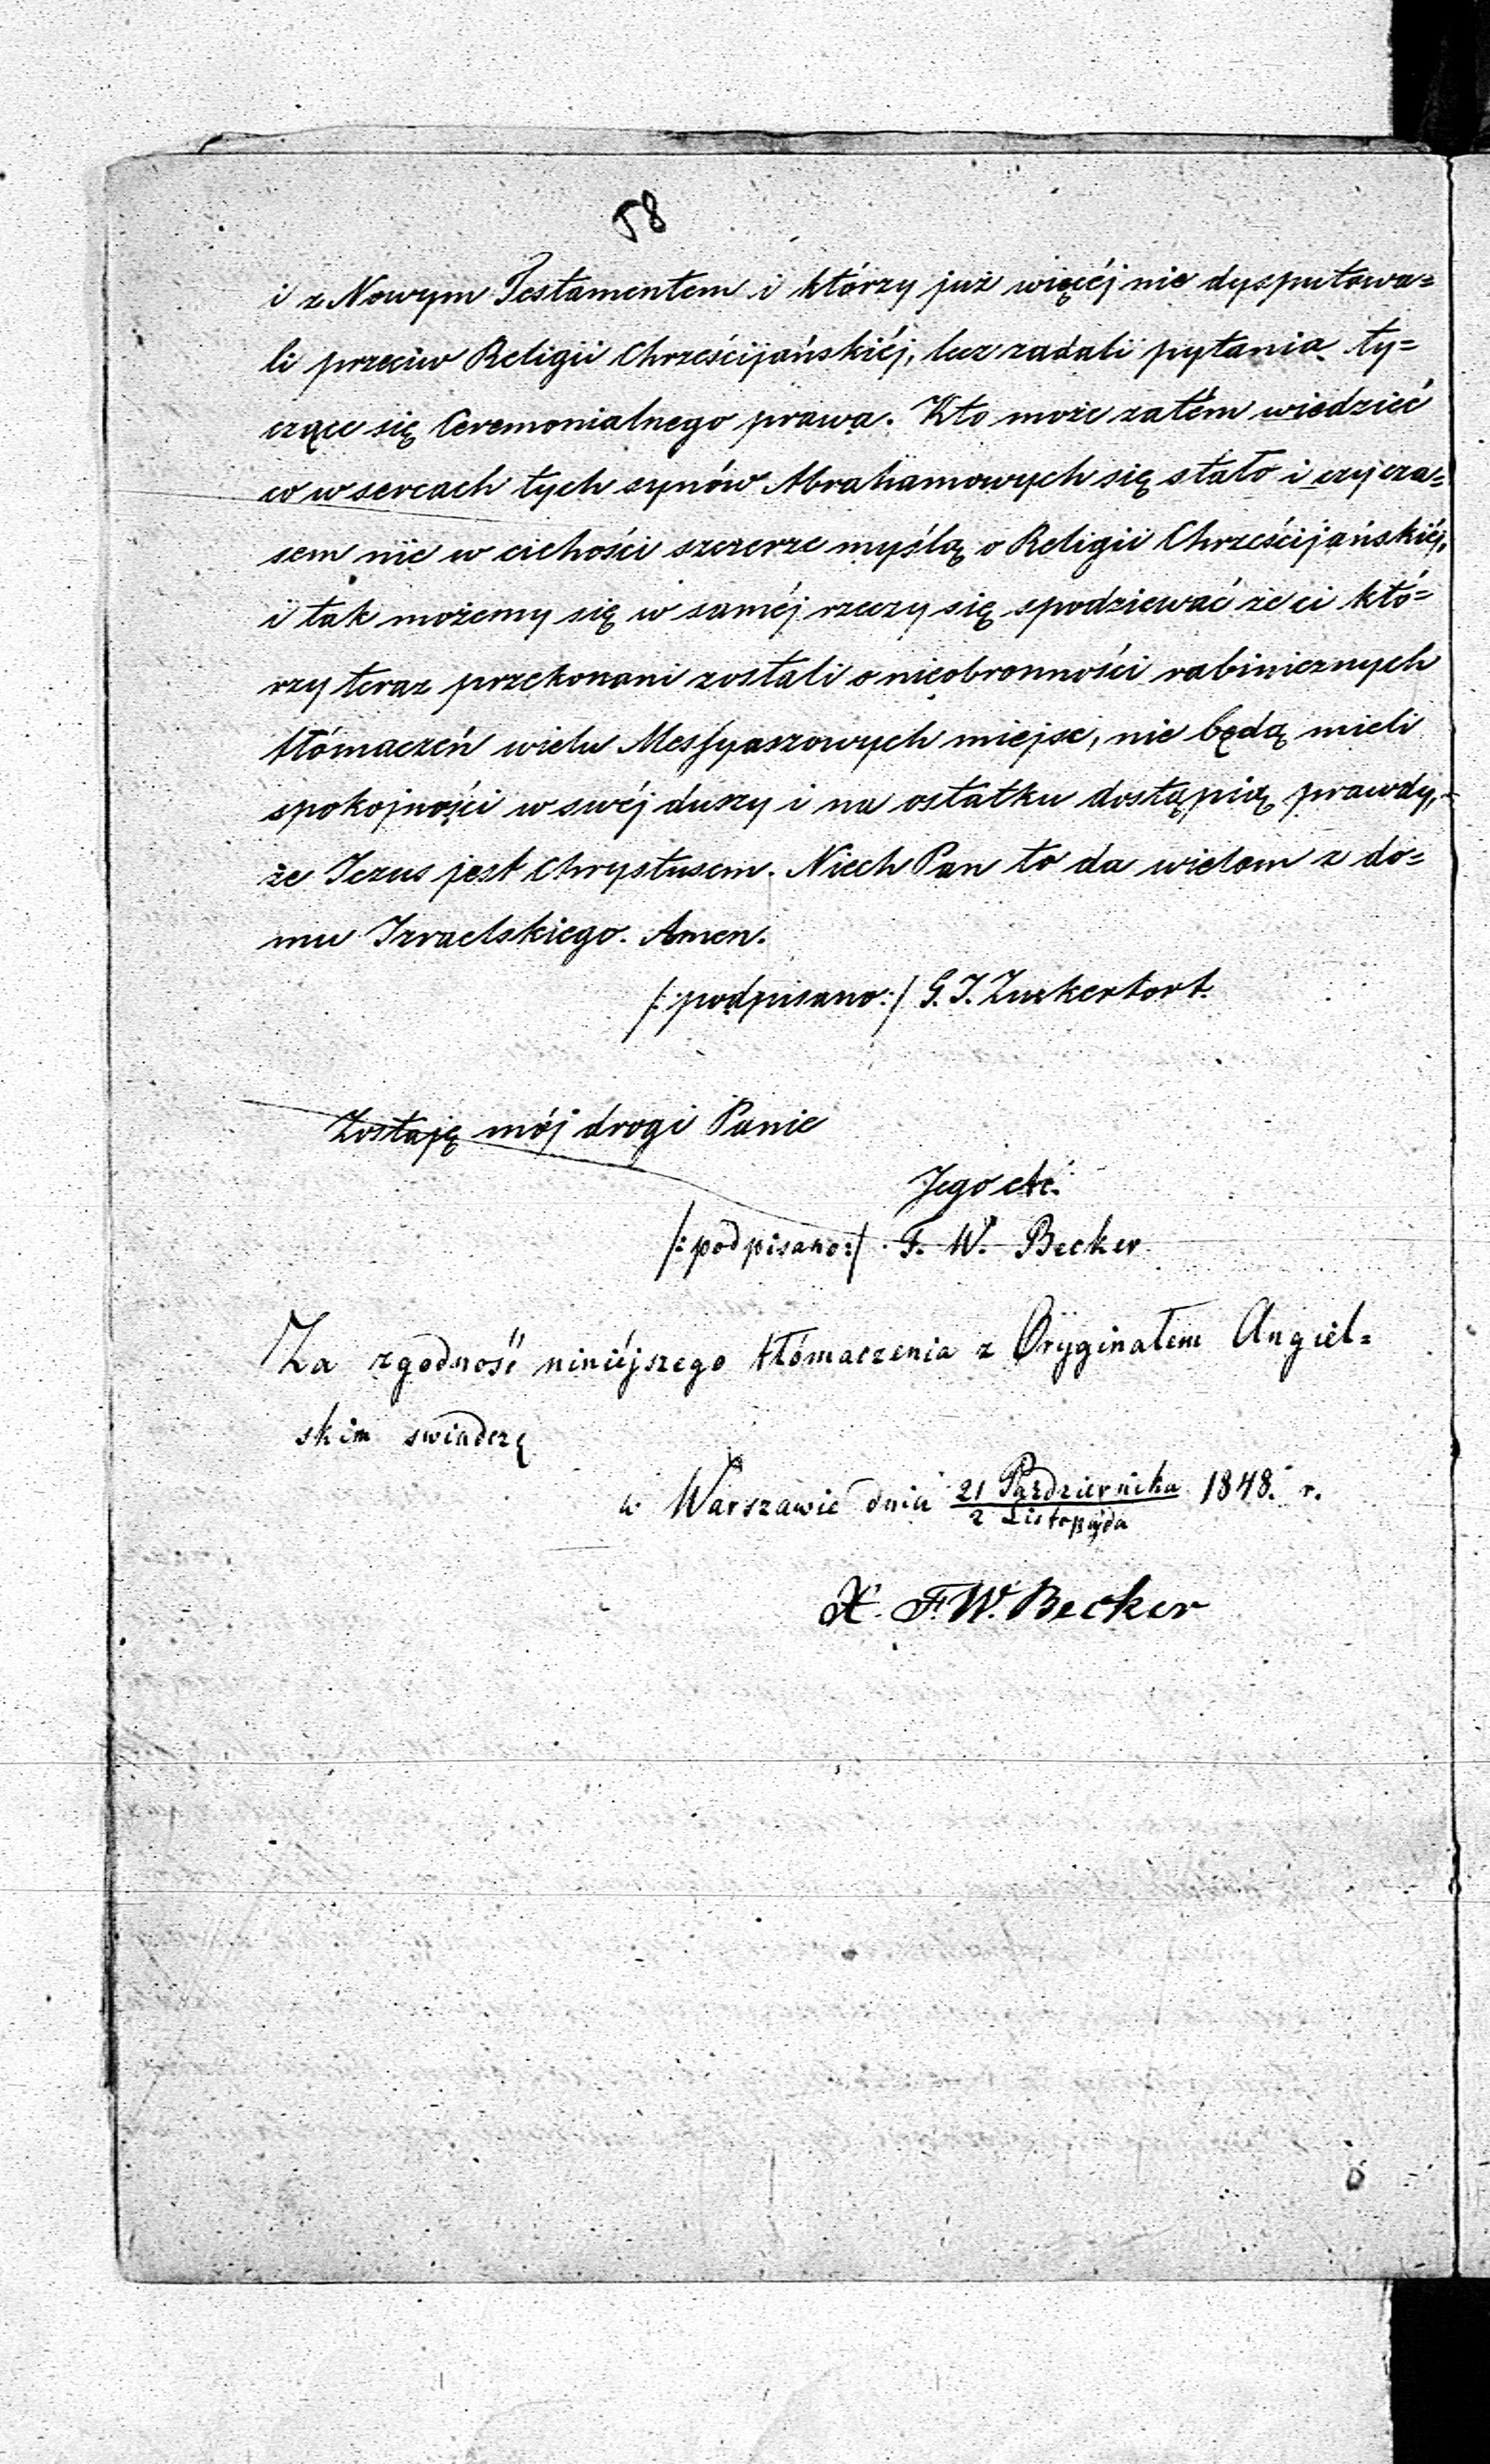 58
i z Nowym Testamentem i którzy już więcéj nie dysputowa=
li przeciw Religii Chrześcijańskiéj, lecz zadali pytania ty=
czące się Ceremonialnego prawa. Kto może zatém wiedzieć
co w sercach tych synów Abrahamowych się stało i czy cza=
sem nie w cichości szczerze myślą o Religii Chrześcijańskiéj,
i tak możemy się w saméj rzeczy się spodziewać że ci któ=
rzy teraz przekonani zostali o nieobronności rabinicznych
tłómaczeń wielu Messyaszowych miejsc, nie będą mieli
spokojności w swéj duszy i na ostatku dostąpią prawdy,
że Jezus jest Chrystusem. Niech Pan to da wielom z do=
mu Izraelskiego. Amen.
/:podpisano:/ G. J. Zukertort.
Zostaję mój drogi Panie
Jego etc.
/:podpisano:/ F. W. Becker
Za zgodność niniéjszego tłómaczenia z Oryginałem Angiel=
skim swiadczę
w Warszawie dnia 21 Października 1848. r.
2 Listopada
X. F. W. Becker